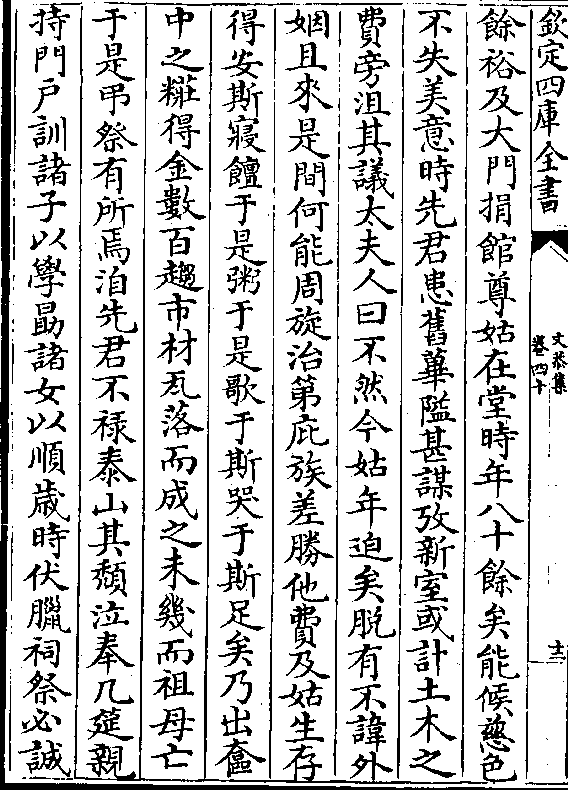 欽定四庫全書
文恭集
卷四十
十二
餘裕及大門捐館尊姑在堂時年八十餘矣能候慈色
不失美意時先君患舊蓽隘甚謀攷新室或計土木之
費旁沮其議太夫人曰不然今姑年迫矣脱有不諱外
姻且來是間何能周旋治第庇族差勝他費及姑生存
得安斯寢饘于是粥于是歌于斯哭于斯足矣乃出奩
中之糚得金數百趨市材瓦落而成之未幾而祖母亡
于是弔祭有所焉洎先君不禄泰山其頽泣奉几筵親
持門戸訓諸子以學勗諸女以順歳時伏臘祠祭必誠